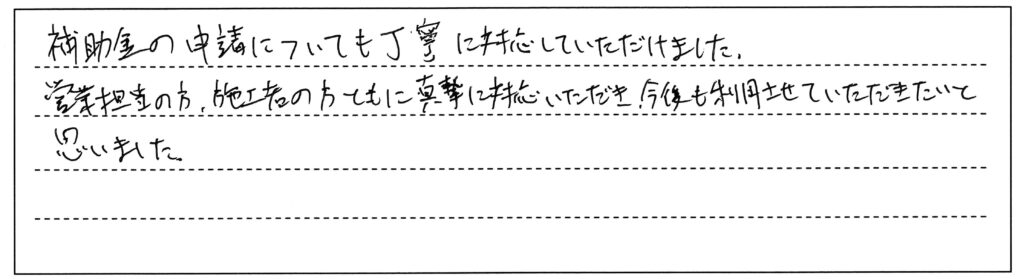 補助金の申請についても丁寧に対応していただけました。
営業担当の方、施工者の方ともに真摯に対応いただき、今後も利用させていただきたいと
思いました。